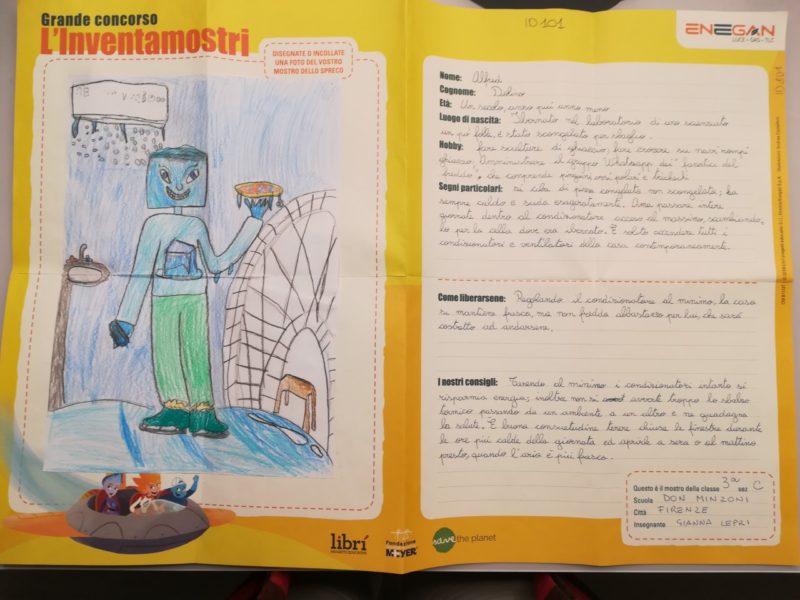 Grande concorso
L'Inventamostri
DISEGNATE O INCOLLATE
UNA FOTO DEL VOSTRO
MOSTRO DELLO SPRECO
librí
Fondazione
MEYER
ID 101
ENEGAN
LUCE - GAS - TLC
ID 101
Nome: Alfred
Cognome: Dolino
Età: Un secolo, anno più anno meno
Luogo di nascita: Ibernato nel laboratorio di uno scienziato
un po' folle, è stato scongelato per sbaglio.
Hobby: fare sculture di ghiaccio, fare crociere su navi rompi
ghiaccio. Amministrare il gruppo Whatsapp dei "fanatici del
freddo", che comprende pinguini orsi polari e trichechi
Segni particolari: si ciba di pizza congelata non scongelata; ha
sempre caldo e suda esageratamente. Ama passare intere
giornate dentro al condizionatore acceso al massimo, scambiando,
lo per la cella dove era ibernato. È solito accendere tutti i
condizionatori e ventilatori della casa contemporaneamente.
Come liberarsene: Regolando il condizionatore al minimo, la casa
si mantiene fresca, ma non fredda abbastanza per lui, che sarà
costretto ad andarsene.
I nostri consigli: Tenendo al minimo i condizionatori intanto si
risparmia energia; inoltre non si avverte troppo lo sbalzo
termico passando da un ambiente a un altro e ne guadagna
la salute. È buona consuetudine tenere chiuse le finestre durante
le ore più calde della giornata ed aprirle a sera o al mattino
presto, quando l'aria è più fresca.
Questo è il mostro della classe 3ª sez C
Scuola DON MINZONI
Città FIRENZE
Insegnante GIANNA LEPRI
save the planet